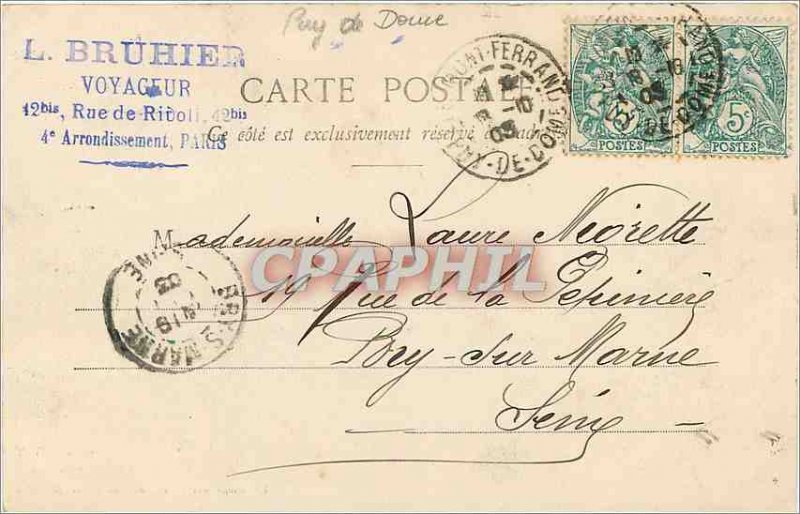 Puy de Dome
L. BRUHIER
VOYAGEUR
12bis, Rue de Rivoli, 12bis
4e Arrondissement, PARIS
CARTE POSTALE
Ce côté est exclusivement réservé à l'adresse
MONT-FERRAND
PUY-DE-DOME
5c
POSTES
5c
POSTES
Mademoiselle Laure Neirette
19 Rue de la Pépinière
Bry-sur Marne
Seine
BRY-S-MARNE
SEINE
CPAPHIL